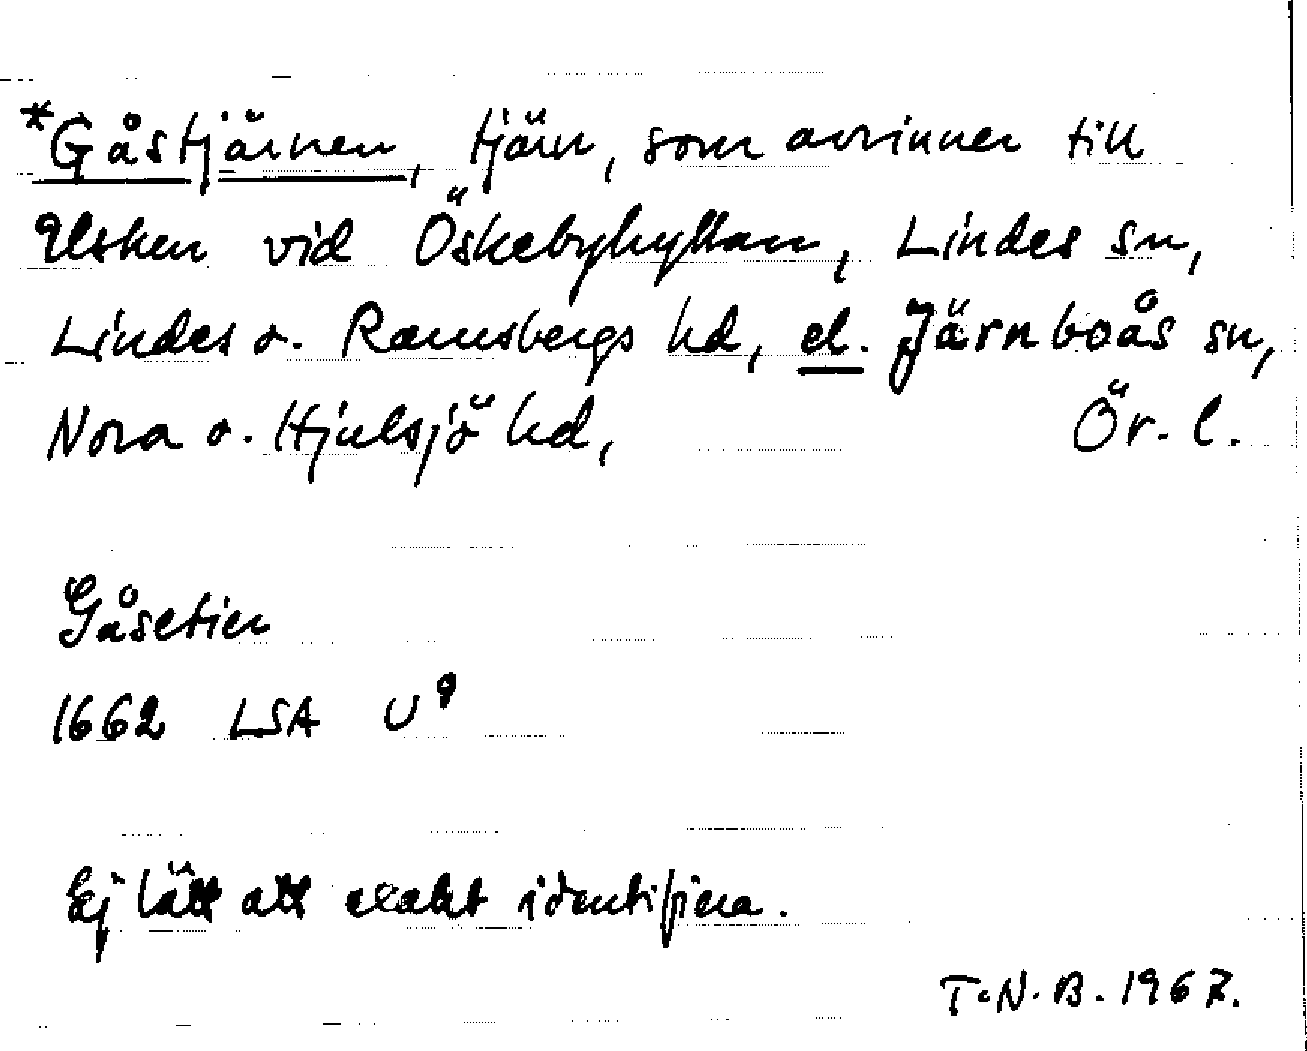 *Gåstjärnen, tjärn, som avrinner till
Usken vid Öskebyhyttan, Lindes sn,
Lindes o. Ramsbergs hd, el. Järnboås sn,
Nora o. Hjulsjö hd, Ör. l.
Gåsetien
1662 LSA U9
Ej lätt att exakt identifiera.
T.N.B. 1967.